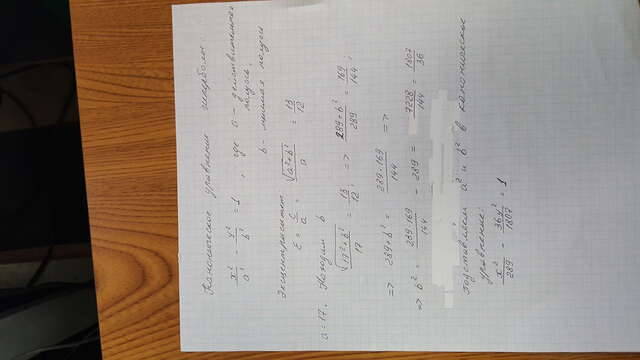 Каноническое уравнение гиперболы:
x²/a² - y²/b² = 1, где a - действительная
полуось,
b - мнимая полуось
Эксцентриситет
ε = c/a = √(a²+b²)/a = 13/12
a = 17. Находим b
√(17²+b²)/17 = 13/12; => (289+b²)/289 = 169/144;
=> 289+b² = 289·169/144 =>
=> b² = 289·169/144 - 289 = 7228/144 = 1807/36
подставляем a² и b² в каноническое
уравнение:
x²/289 - 36y²/1807 = 1